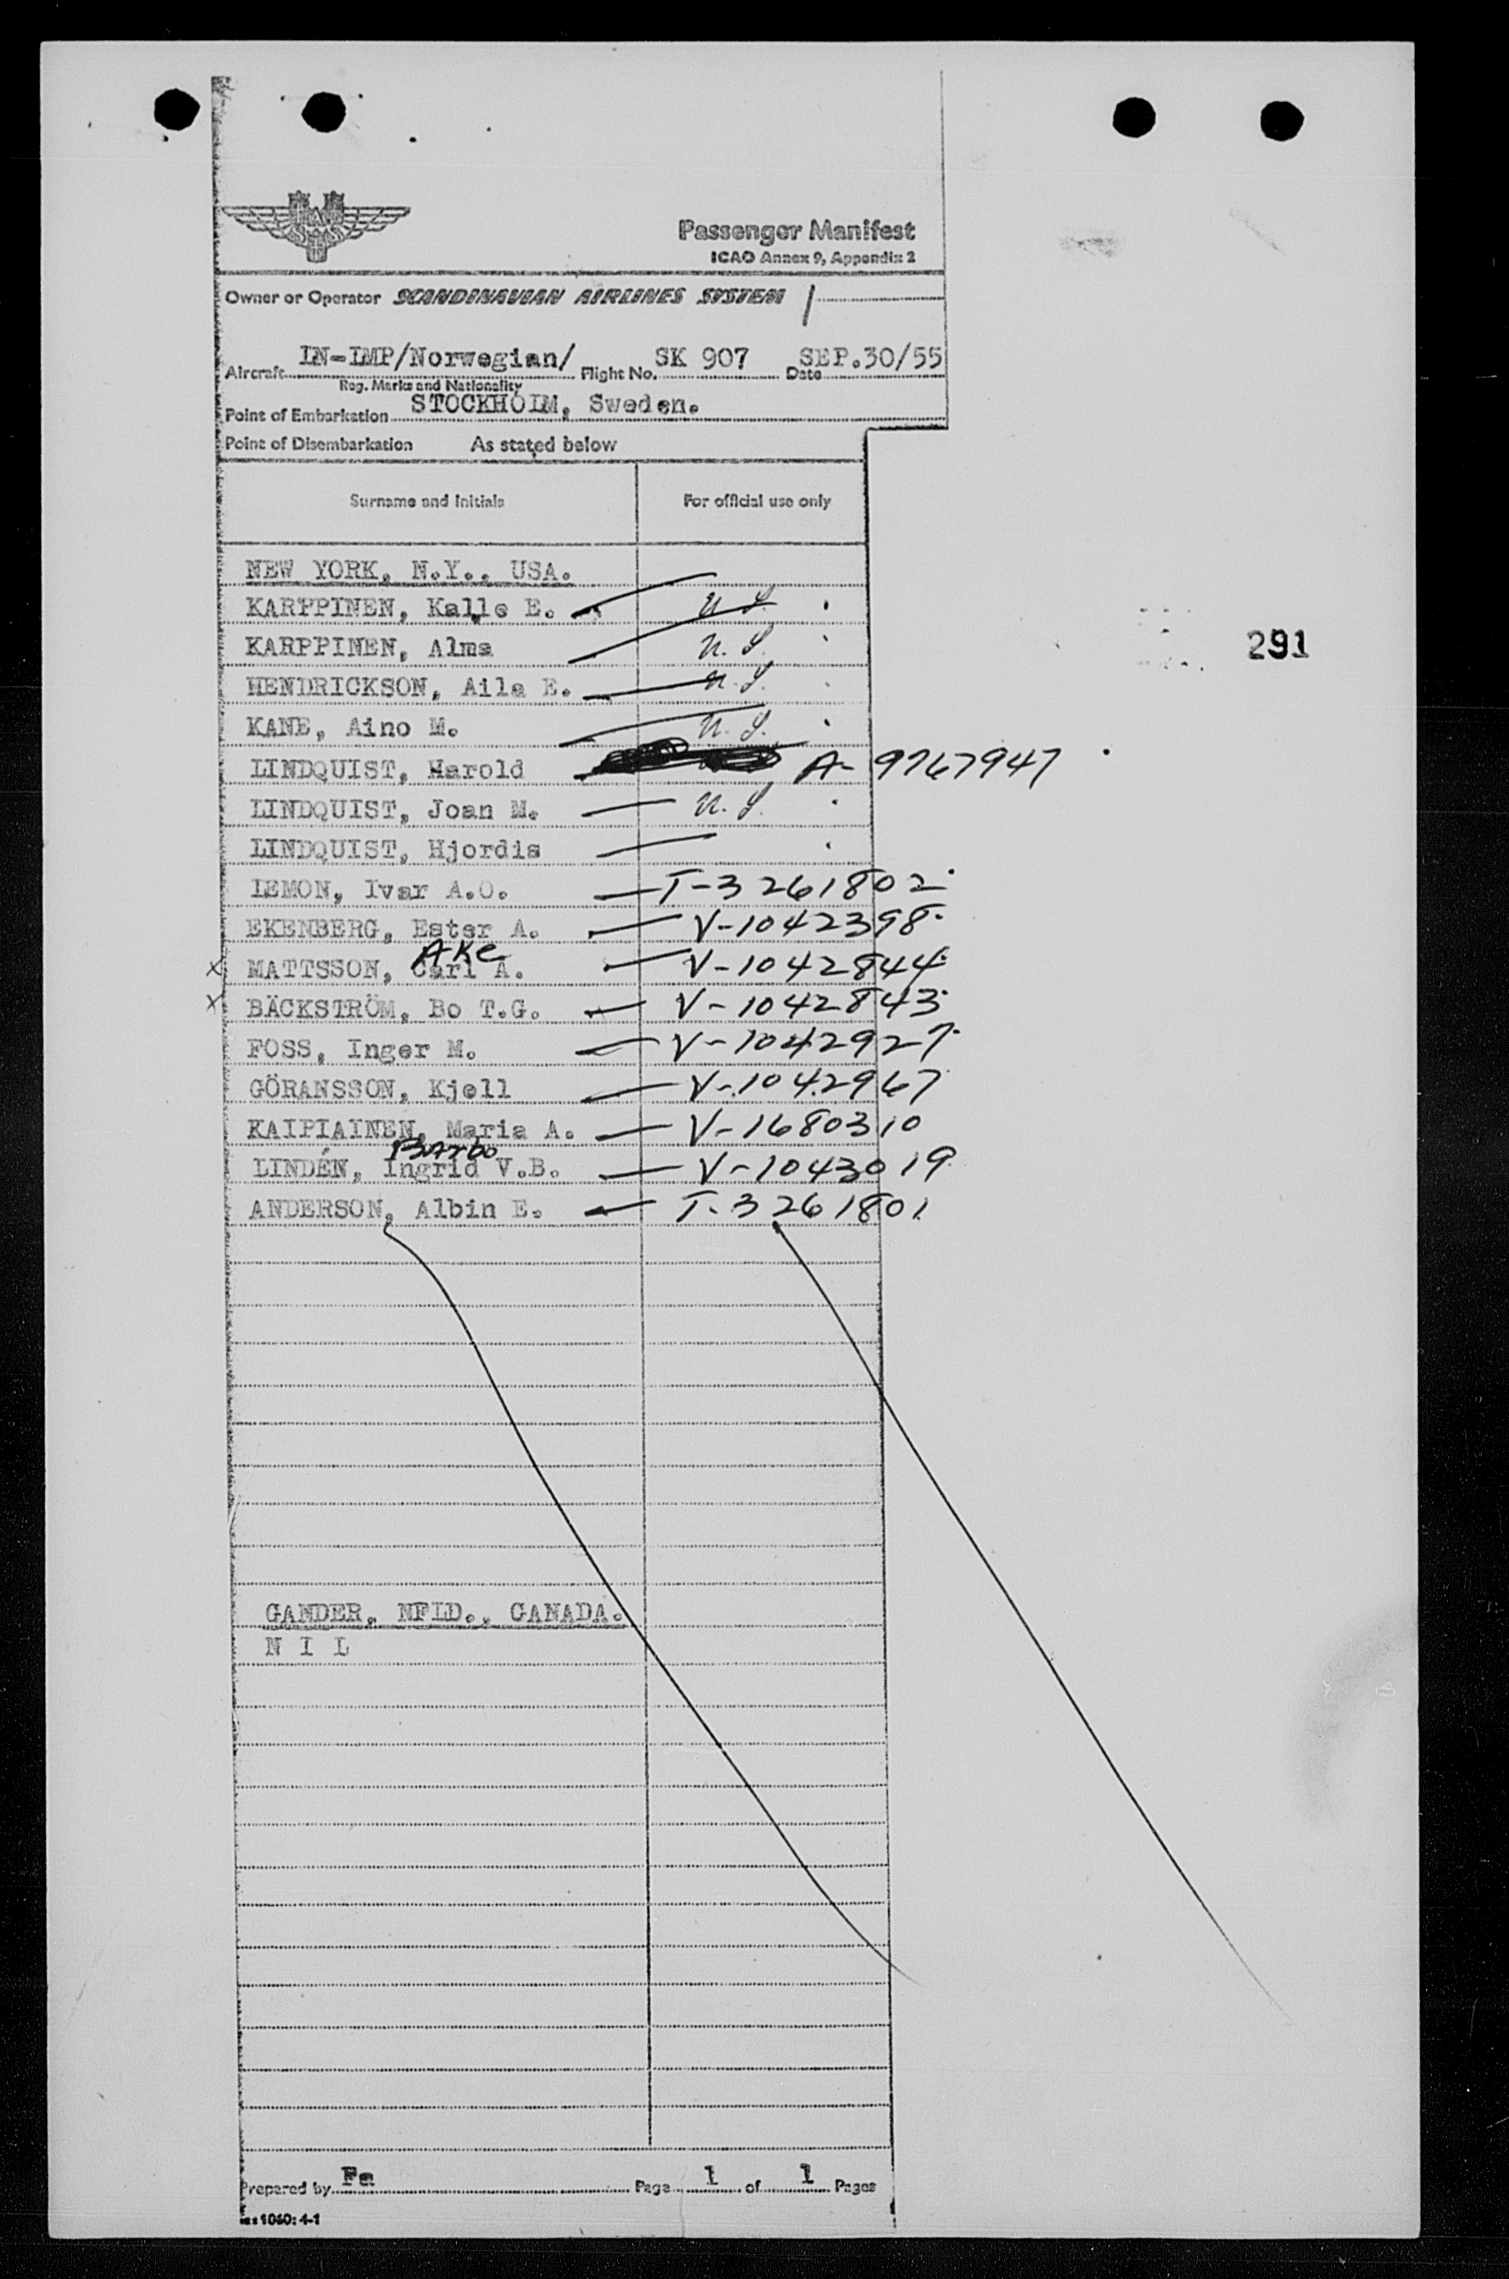 SAS
Passenger Manifest
ICAO Annex 9, Appendix 2
Owner or Operator SCANDINAVIAN AIRLINES SYSTEM
Aircraft LN-LMP/Norwegian/ Flight No. SK 907 Date SEP.30/55
Reg. Marks and Nationality
Point of Embarkation STOCKHOLM, Sweden.
Point of Disembarkation As stated below
Surname and Initials For official use only
NEW YORK, N.Y., USA.
KARPPINEN, Kalle E. U.S.
KARPPINEN, Alma U.S.
291
HENDRICKSON, Aila E. U.S.
KANE, Aino M. U.S.
LINDQUIST, Harold A-9767947
LINDQUIST, Joan M. U.S.
LINDQUIST, Hjordis
LEMON, Ivar A.O. T-3261802
EKENBERG, Ester A. V-1042398
AKe
X MATTSSON, Carl A. V-1042844
X BÄCKSTRÖM, Bo T.G. V-1042843
FOSS, Inger M. V-1042927
GÖRANSSON, Kjell V-1042967
KAIPIAINEN, Maria A. V-1680310
Barbo
LINDÉN, Ingrid V.B. V-1043019
ANDERSON, Albin E. T-3261801
GANDER, NFLD., CANADA.
N I L
Prepared by Fa Page 1 of 1 Pages
1060: 4-1